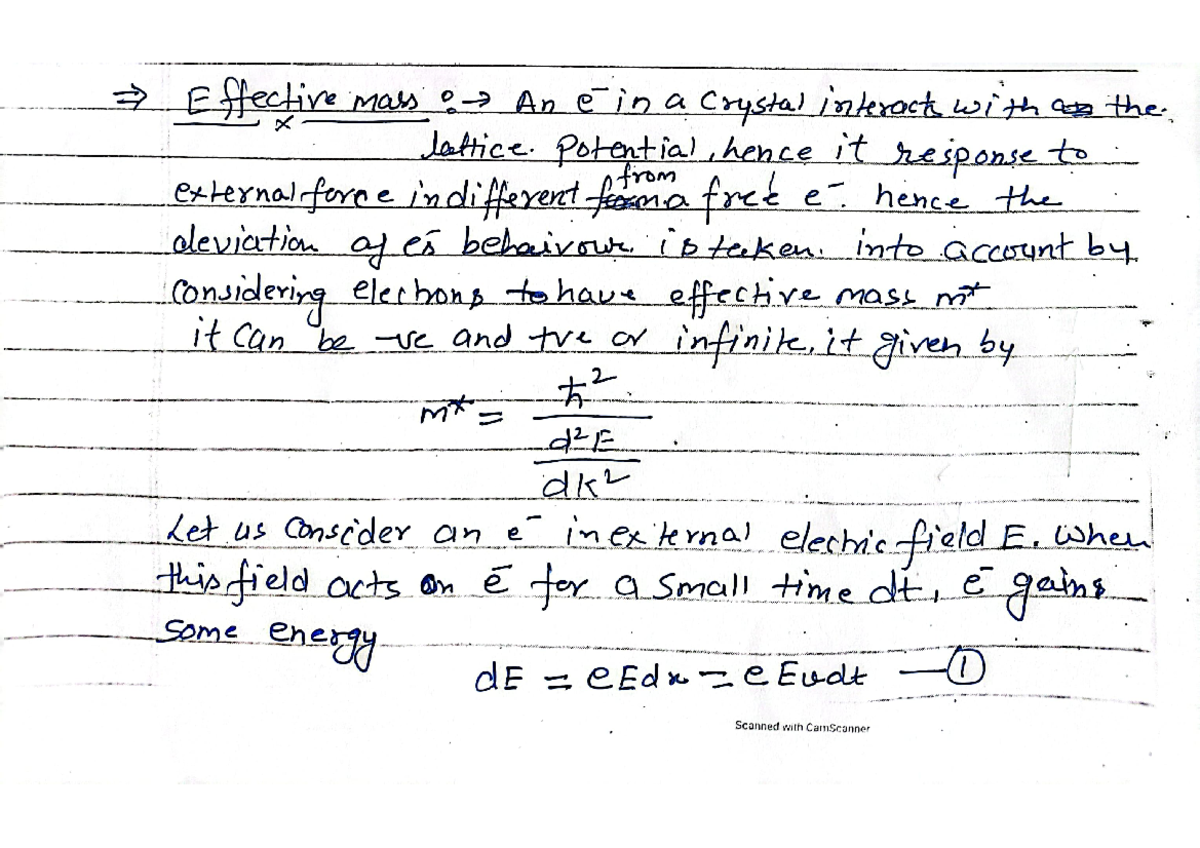 ⇒ Effective mass :→ An e⁻ in a crystal interact with the
lattice. potential, hence it response to
external force in different from a free e⁻. hence the
deviation of e⁻s behaivour is taken. into account by
Considering elechons to have effective mass m*
it can be -ve and +ve or infinite, it given by
m* = ħ² / (d²E / dk²)
Let us Consider an e⁻ in external electric field E. When
this field acts on e⁻ for a small time dt, e⁻ gains
some energy
dE = eEdx = eEvdt —①
Scanned with CamScanner